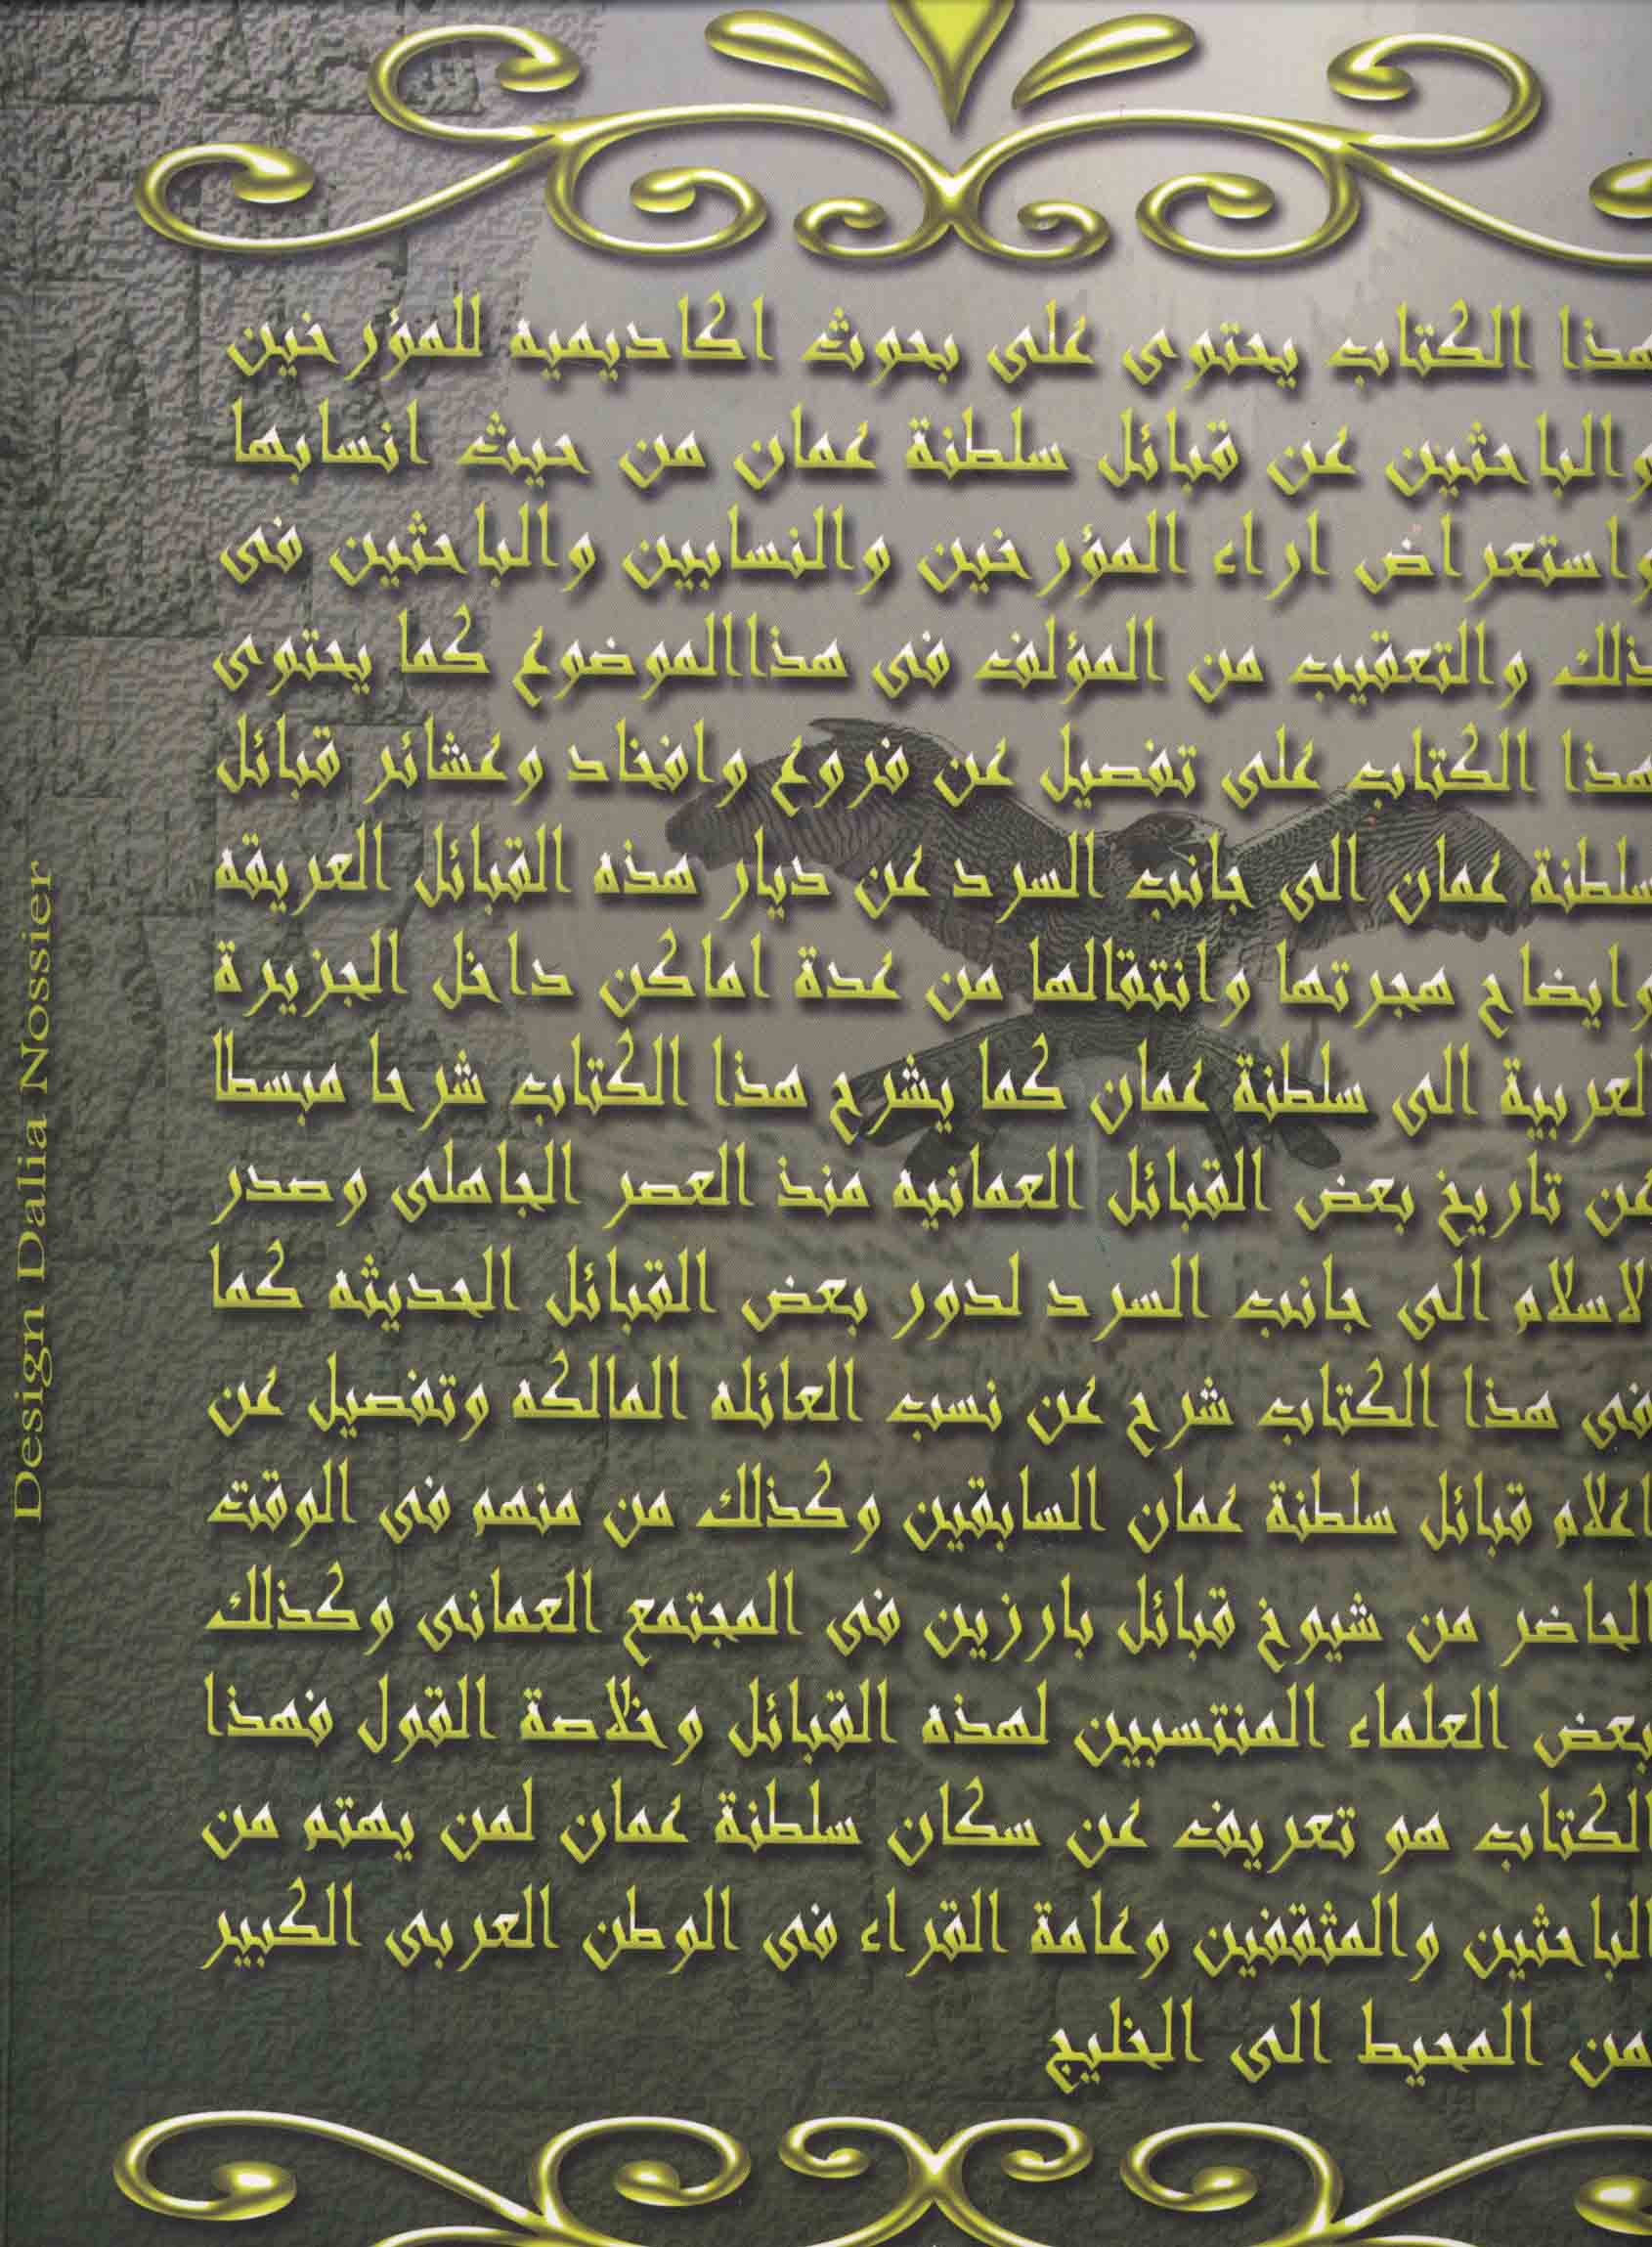 هذا الكتاب يحتوى على بحوث اكاديميه للمؤرخين
والباحثين عن قبائل سلطنة عمان من حيث انسابها
واستعراض اراء المؤرخين والنسابين والباحثين فى
ذلك والتعقيب من المؤلف فى هذاالموضوع كما يحتوى
هذا الكتاب على تفصيل عن فروع وافخاد وعشائر قبائل
سلطنة عمان الى جانب السرد عن ديار هذه القبائل العريقه
وايضاح هجرتها وانتقالها من عدة اماكن داخل الجزيرة
العربية الى سلطنة عمان كما يشرح هذا الكتاب شرحا مبسطا
عن تاريخ بعض القبائل العمانيه منذ العصر الجاهلى وصدر
الاسلام الى جانب السرد لدور بعض القبائل الحديثه كما
فى هذا الكتاب شرح عن نسب العائله المالكه وتفصيل عن
اعلام قبائل سلطنة عمان السابقين وكذلك من منهم فى الوقت
الحاضر من شيوخ قبائل بارزين فى المجتمع العمانى وكذلك
بعض العلماء المنتسبين لهذه القبائل وخلاصة القول فهذا
الكتاب هو تعريف عن سكان سلطنة عمان لمن يهتم من
الباحثين والمثقفين وعامة القراء فى الوطن العربى الكبير
من المحيط الى الخليج
Design Dalia Nossier